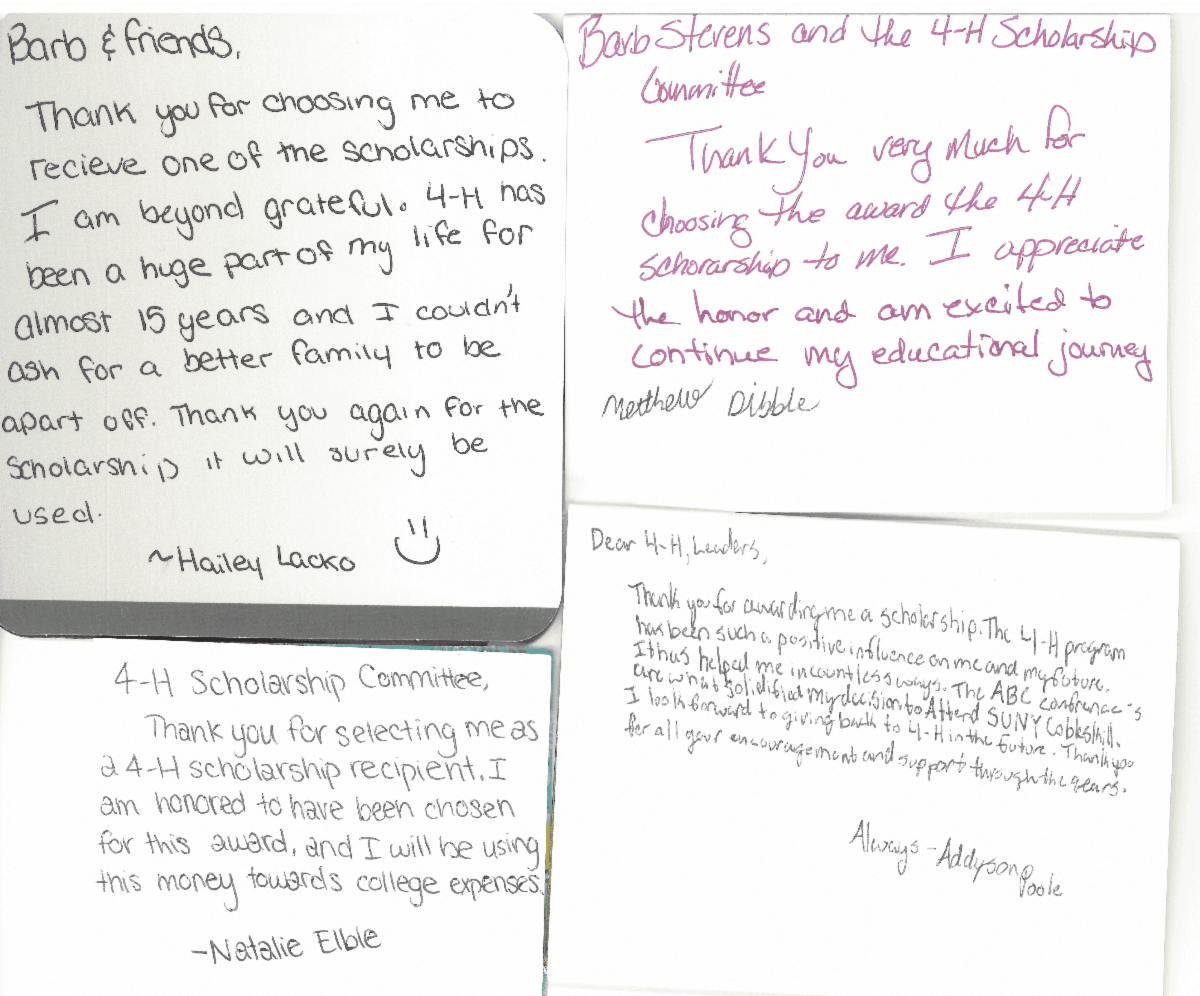 Barb & friends,
Thank you for choosing me to
recieve one of the scholarships.
I am beyond grateful. 4-H has
been a huge part of my life for
almost 15 years and I couldn't
ask for a better family to be
apart off. Thank you again for the
scholarship it will surely be
used.
~Hailey Lacko
Barb Stevens and the 4-H Scholarship
Committee
Thank You very much for
choosing the award the 4-H
schorarship to me. I appreciate
the honor and am excited to
continue my educational journey
Matthew Dibble
4-H Scholarship Committee,
Thank you for selecting me as
a 4-H scholarship recipient. I
am honored to have been chosen
for this award, and I will be using
this money towards college expenses.
-Natalie Elble
Dear 4-H, Leaders,
Thank you for awarding me a scholarship. The 4-H program
has been such a positive influence on me and my future.
It has helped me in countless ways. The ABC confrence's
are what solidified my decision to Attend SUNY Cobleskill.
I look forward to giving back to 4-H in the future. Thank you
for all your encouragement and support through the years.
Always - Addyson
Poole